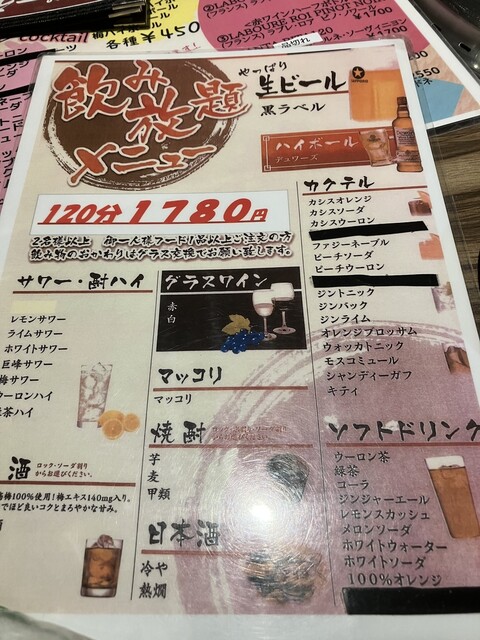 cocktail
各種 ¥450
¥1700
品切れ
飲み放題
メニュー
やっぱり
生ビール
黒ラベル
ハイボール
デュワーズ
120分1780円
2名様以上 御一人様フード1品以上ご注文の方
飲み物のおかわりはグラス交換でお願い致します。
サワー・酎ハイ
レモンサワー
ライムサワー
ホワイトサワー
巨峰サワー
梅サワー
ウーロンハイ
緑茶ハイ
酒
ロック・ソーダ割り
からお選びください。
梅100%使用!梅エキス140mg入り。
でほど良いコクとまろやかな甘み。
グラスワイン
赤
白
マッコリ
マッコリ
焼酎
ロック・水割り・ソーダ割り
からお選びください。
芋
麦
甲類
日本酒
冷や
熱燗
カクテル
カシスオレンジ
カシスソーダ
カシスウーロン
ファジーネーブル
ピーチソーダ
ピーチウーロン
ジントニック
ジンバック
ジンライム
オレンジブロッサム
ウォッカトニック
モスコミュール
シャンディーガフ
キティ
ソフトドリンク
ウーロン茶
緑茶
コーラ
ジンジャーエール
レモンスカッシュ
メロンソーダ
ホワイトウォーター
ホワイトソーダ
100%オレンジ